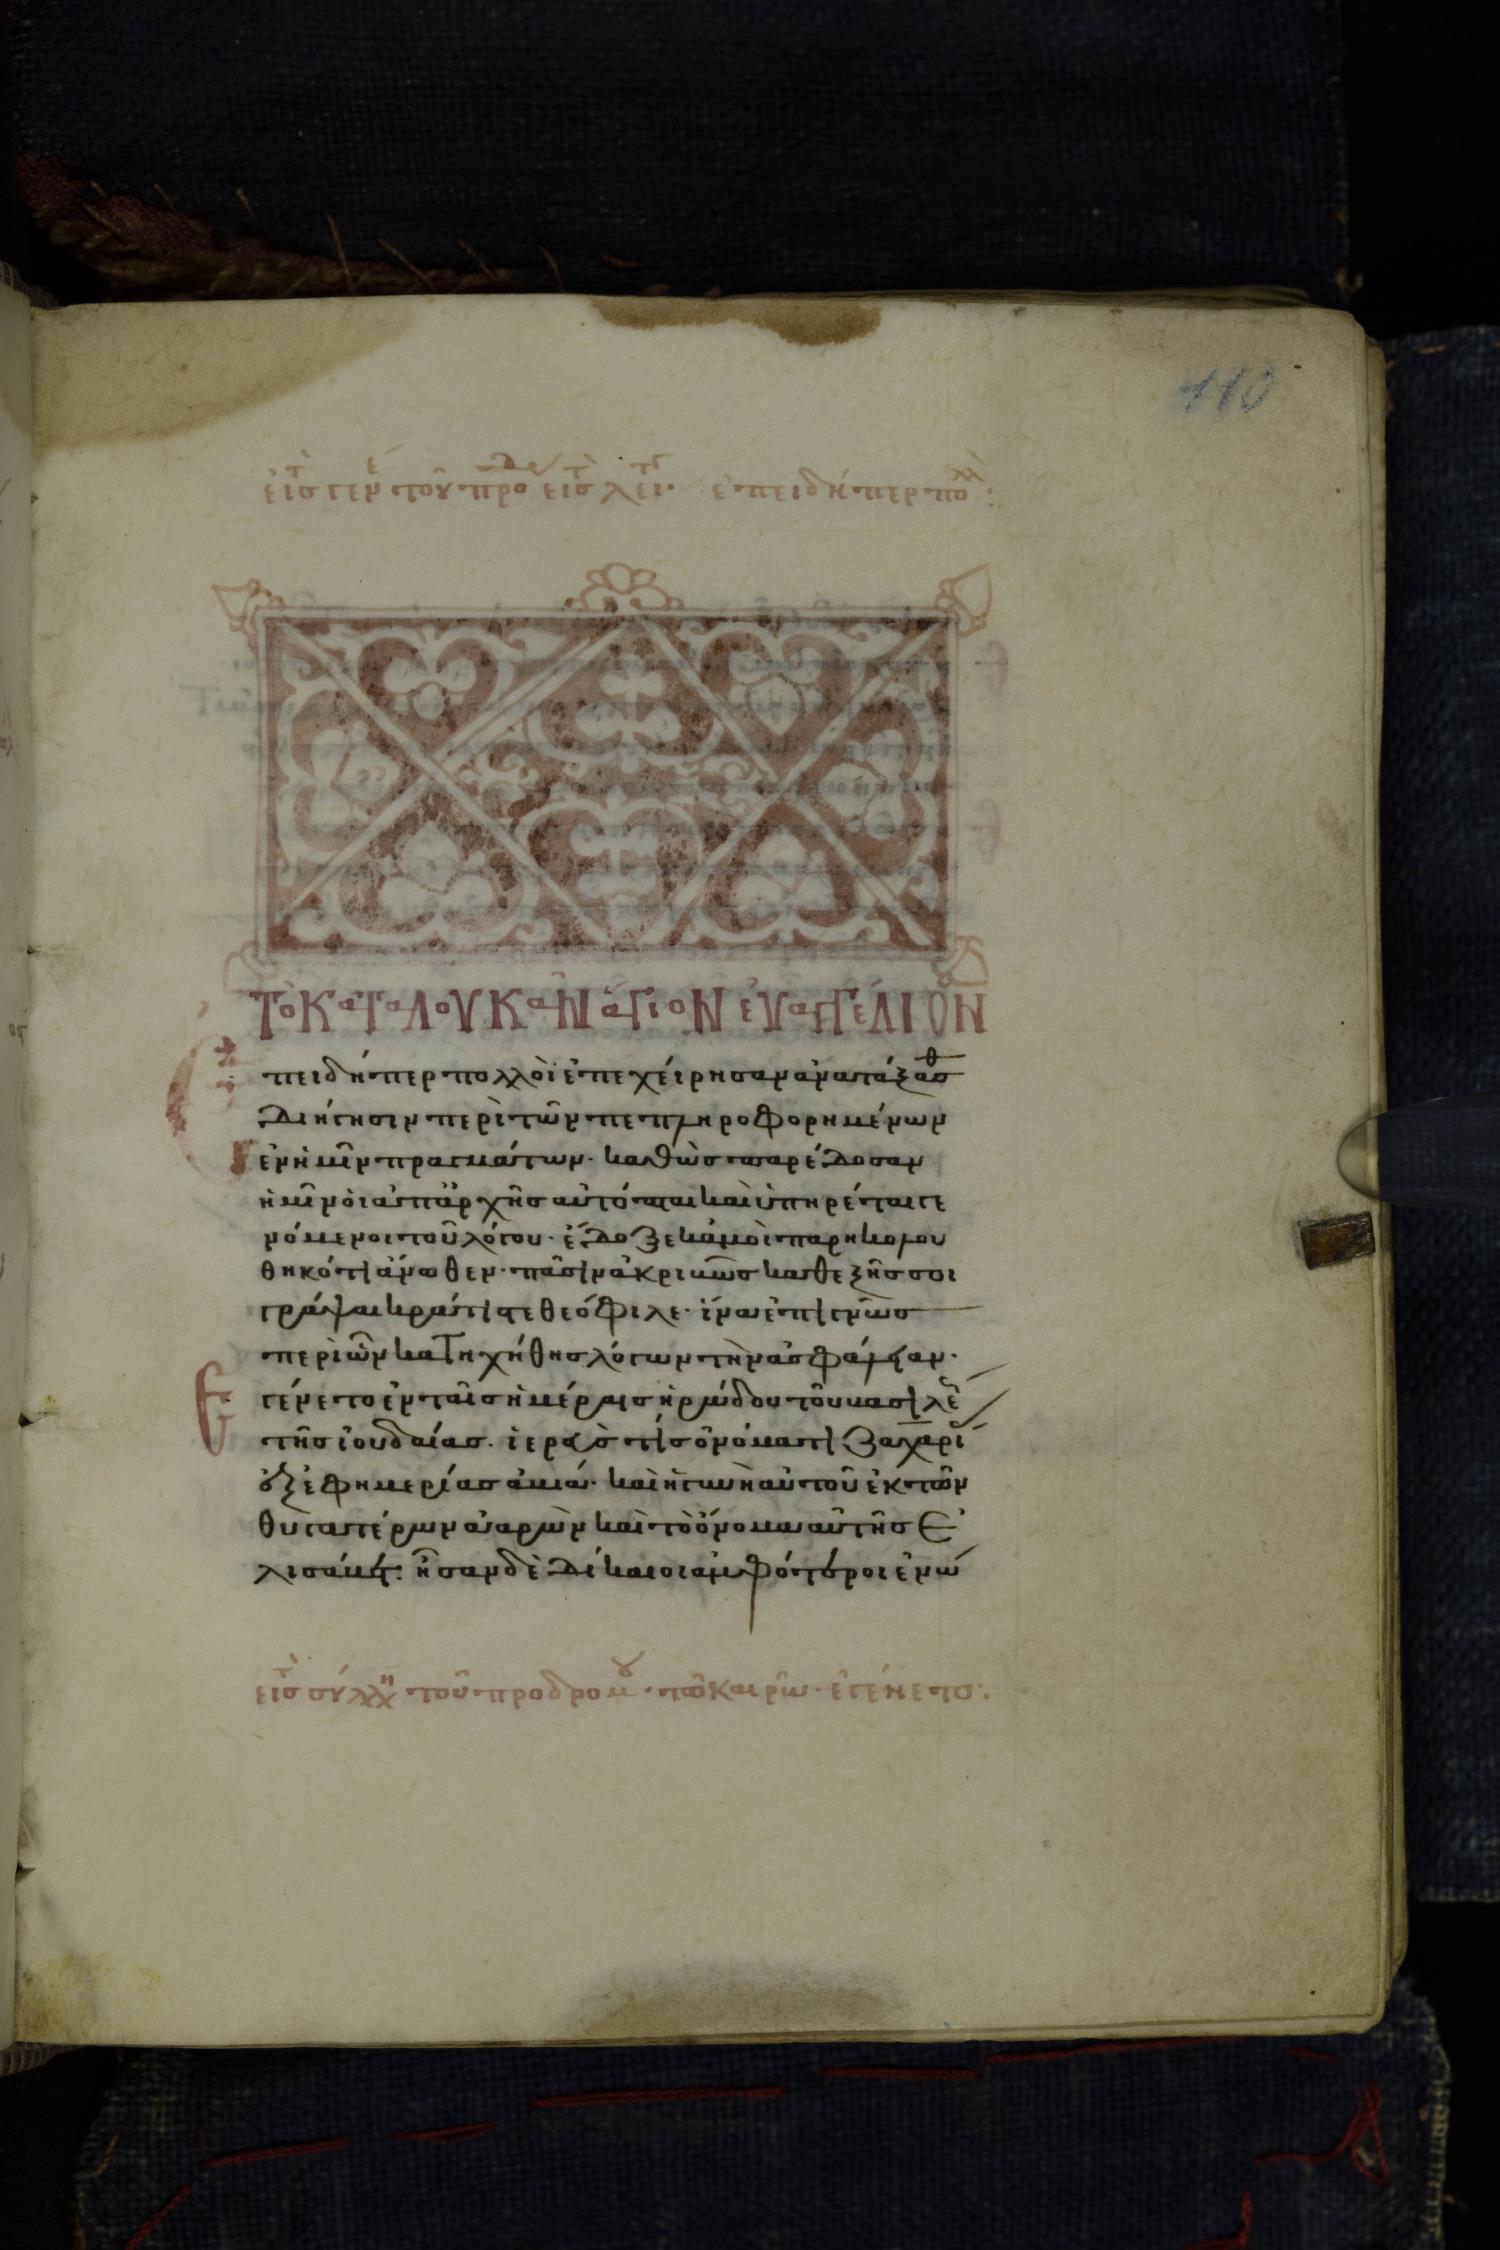 110
εἰς τ γεν τοῦ προδ εἰς τ λει ἐπειδήπερ πολλ:
Τὸ ΚαΤὰ ΛοΥΚᾶΝ ἅΓιοΝ εὐαΓΓέΛΙΟΝ
πειδήπερ πολλοὶ ἐπεχείρησαν ἀνατάξασθ
διήγησιν περὶ τῶν πεπληροφορημένων
ἐν ἡμῖν πραγμάτων· καθὼς παρέδοσαν
ἡμῖν οἱ ἀπ' ἀρχῆς αὐτόπται καὶ ὑπηρέται γε
νόμενοι τοῦ λόγου· ἔδοξε κἀμοὶ παρηκολου
θηκότι ἄνωθεν· πᾶσιν ἀκριβῶς καθεξῆς σοι
γράψαι κράτιστε θεόφιλε· ἵνα ἐπιγνῶς
περὶ ὧν κατηχήθης λόγων τὴν ἀσφάλειαν·
Ἐγένετο ἐν ταῖς ἡμέραις ἡρώδου τοῦ βασιλέ
τῆς ἰουδαίας· ἱερεύς τίς ὀνόματι ζαχαρί
ἐξ ἐφημερίας ἀβιά· καὶ ἡ γυνὴ αὐτοῦ ἐκ τῶν
θυγατέρων ἀαρὼν καὶ τὸ ὄνομα αὐτῆς Ἐ
λισάβετ· ἦσαν δὲ δίκαιοι ἀμφότεροι ἐνώ
εἰς τ σύλλη τοῦ προδρόμου· τῶ καιρῶ· ἐγένετο: